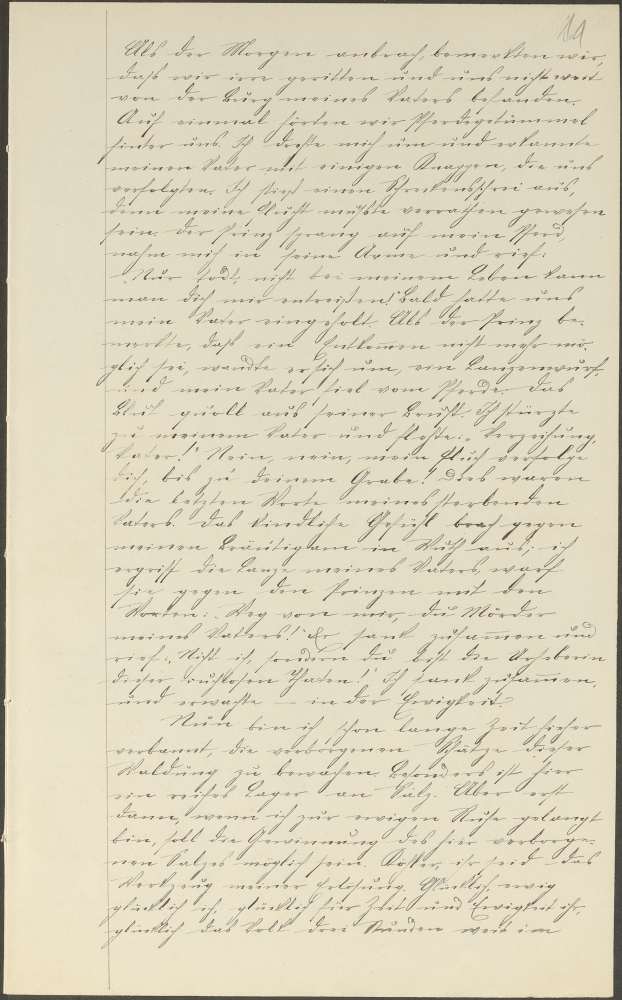 19
Als der Morgen anbrach, bemerkten wir,
daß wir irre geritten und uns nicht weit
von der Burg meines Vaters befanden.
Auf einmal hörten wir Pferdegetümmel
hinter uns. Ich drehte mich um und erkannte
meinen Vater mit einigen Knappen, die uns
verfolgten. Ich stieß einen Schreckensschrei aus,
denn meine Flucht mußte verrathen gewesen
sein. Der Prinz sprang auf mein Pferd,
nahm mich in seine Arme und rief:
„Nur todt, nicht bei meinem Leben kann
man dich mir entreißen!" Bald hatte uns
mein Vater eingeholt. Als der Prinz be-
merkte, daß ein Entkommen nicht mehr mö-
glich sei, wandte er sich um, ein Lanzenwurf,
und mein Vater fiel vom Pferde. Das
Blut quoll aus seiner Brust. Ich stürzte
zu meinem Vater und flehte: „Verzeihung,
Vater!" „Nein, nein, mein Fluch verfolge
dich, bis zu deinem Grabe!" Dies waren
die letzten Worte meines sterbenden
Vaters. Das kindliche Gefühl brach gegen
meinen Bräutigam in Wuth aus; ich
ergriff die Lanze meines Vaters, warf
sie gegen den Prinzen mit den
Worten: „Weg von mir, du Mörder
meines Vaters!" Er sank zusammen und
rief: „Nicht ich, sondern du bist die Urheberin
dieser ruchlosen Thaten!" Ich sank zusammen,
und erwachte — in der Ewigkeit.
Nun bin ich schon lange Zeit hieher
verbannt, die verborgenen Schätze dieser
Waldung zu bewachen. Besonders ist hier
ein reiches Lager an Salz. Aber erst
dann, wenn ich zur ewigen Ruhe gelangt
bin, soll die Gewinnung des hier verborge-
nen Salzes möglich sein. ihr seid das
Werkzeug meiner Erlösung. Glücklich, ewig
glücklich ich, glücklich für Zeit und Ewigkeit ihr,
glücklich das Volk drei Stunden weit im